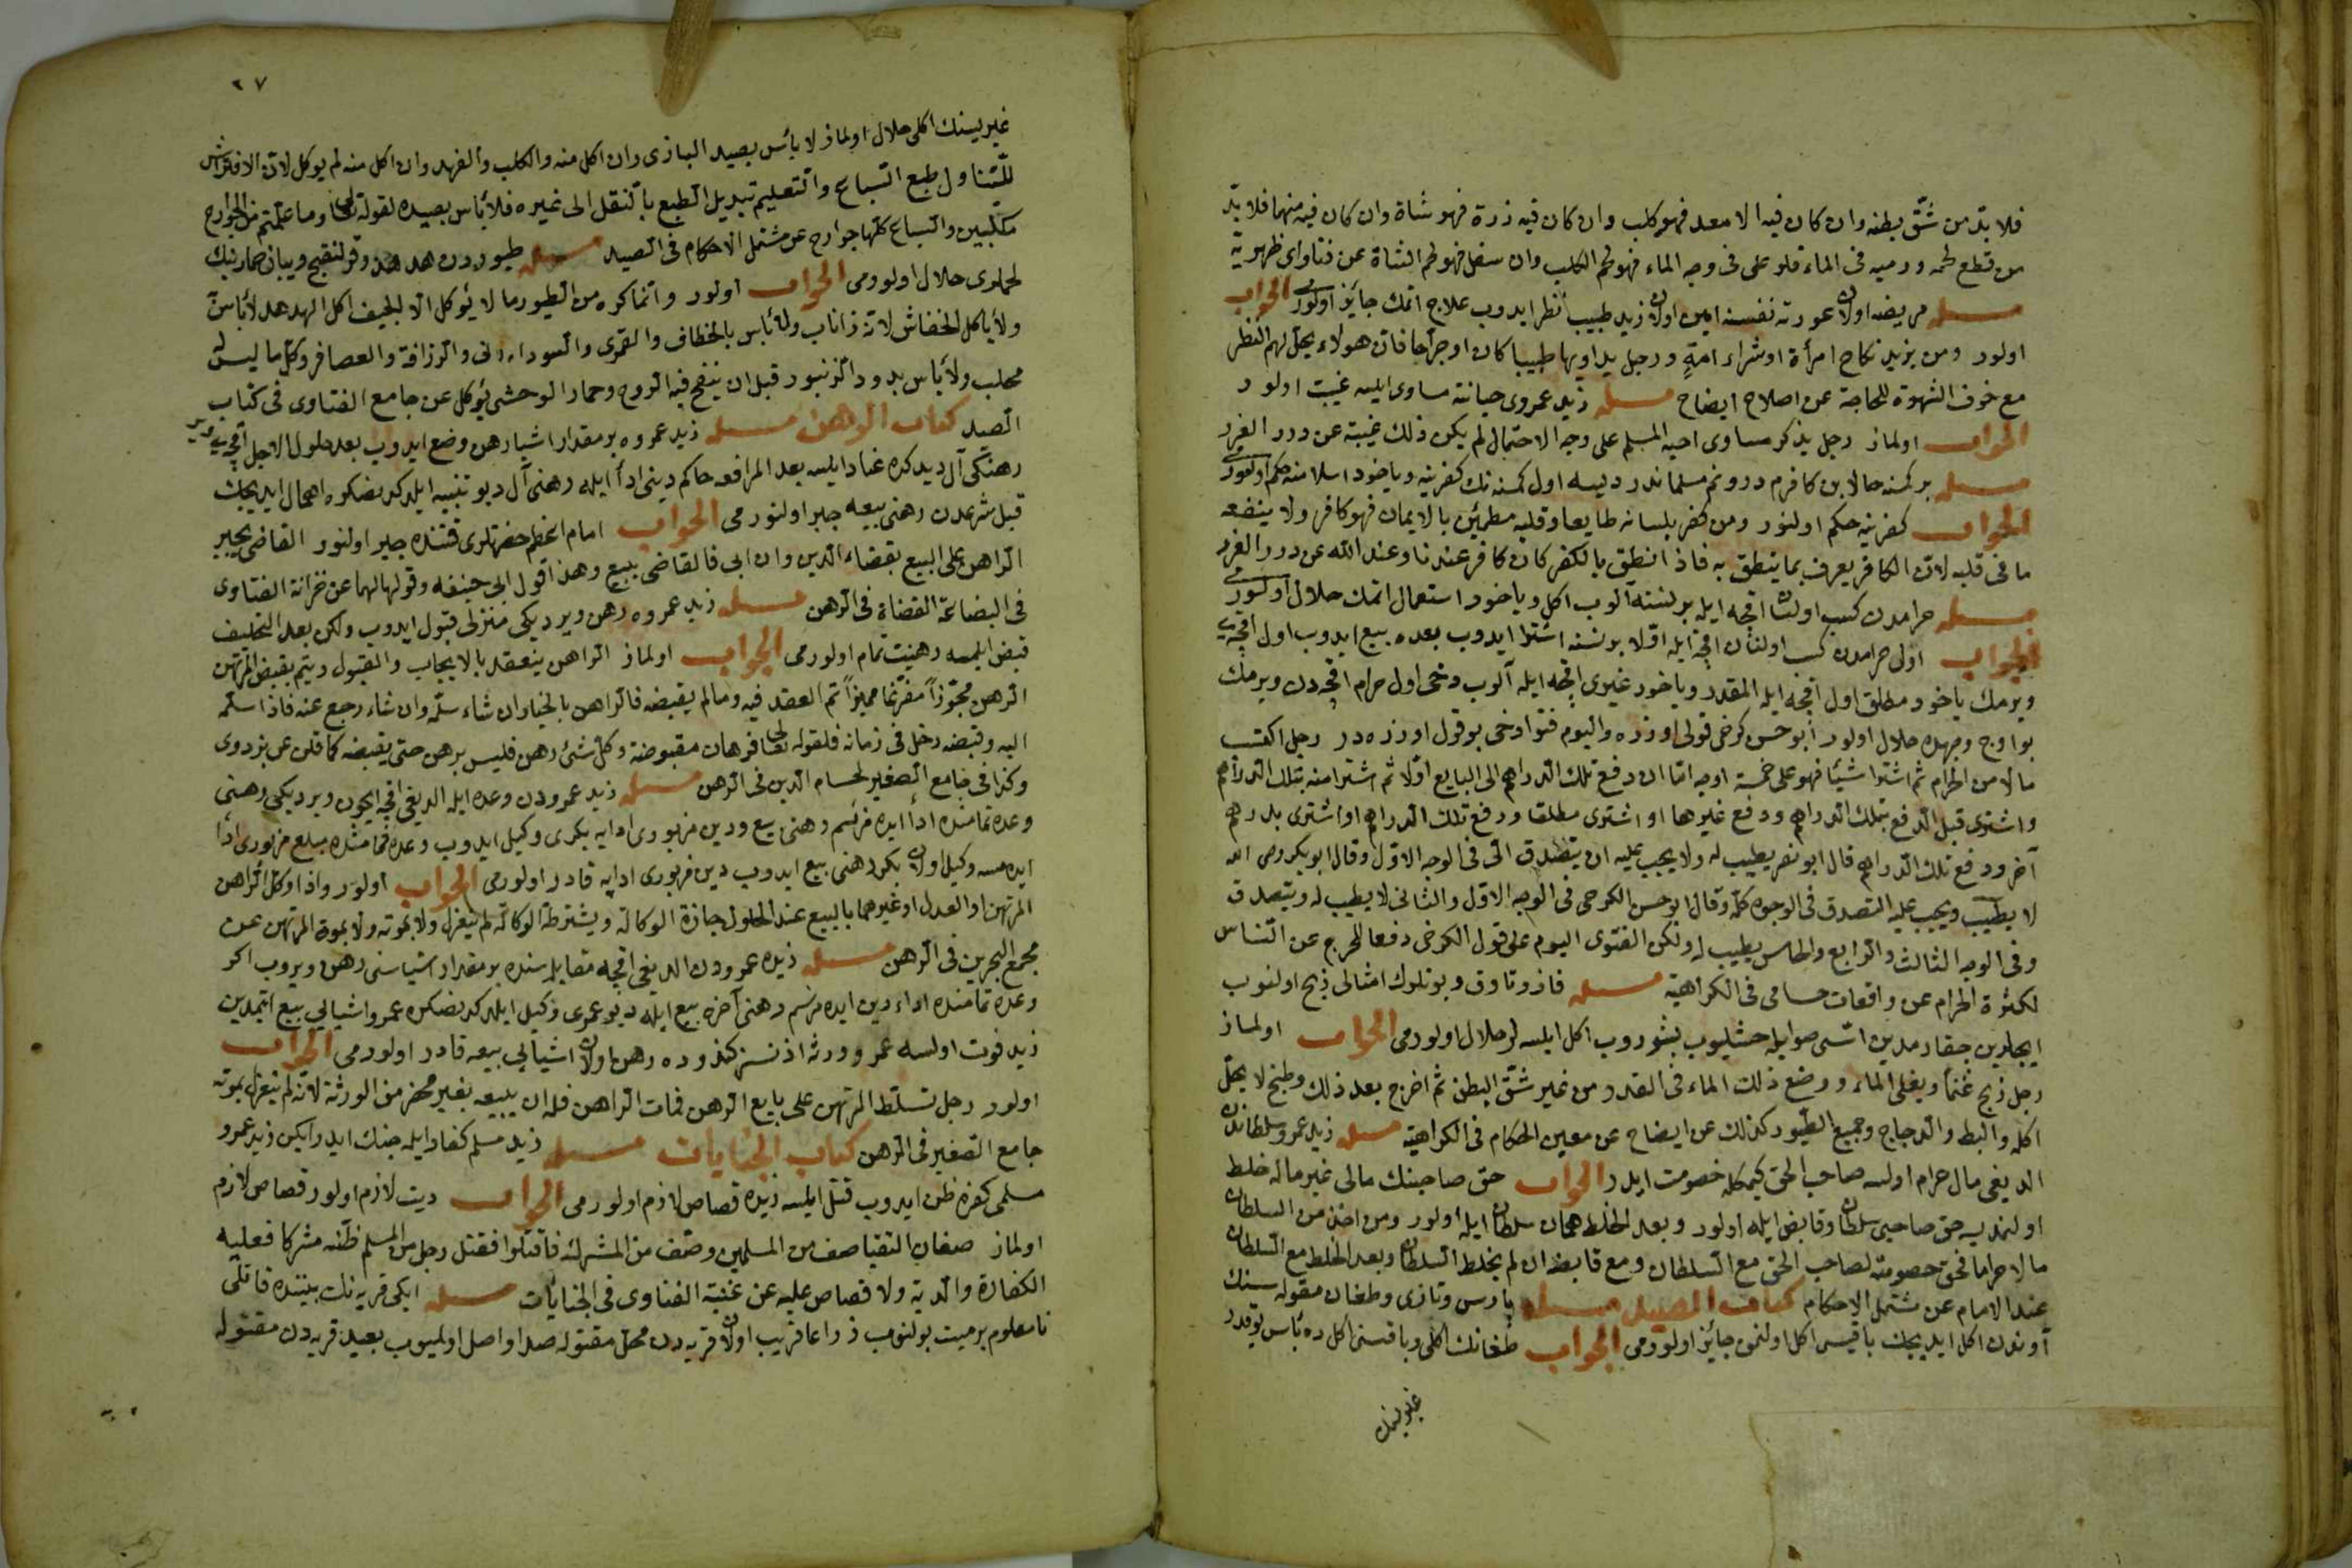 فلا بدّ من شقّ بطنه وان كان فيه الا معد فهو كلب وان كان فيه ذرة فهو شاة وان كان فيه منهما فلا بدّ
من قطع لحمه ورميه فى الماء فلو على فى وجه الماء فهو لحم الكلب وان سفل فهو لحم الشاة عن فتاواى ظهوية
مسئله مريضه اولان عورته نفسنه امين اولان زيد طبيب نظر ايدوب علاج اتمك جايز اولور الجواب
اولور ومن يزيد نكاح امرأة او شراء امةٍ ورجل يداويها طبيبا كان او جرّاحا فان هولاء يحلّ لهم النظر
مع خوف الشهوة للحاجة عن اصلاح ايضاح مسئله زيد عمروى حياتنه مساوى ايلسه غيبت اولور
الجواب اولماز رجل يذكر مساوى اخيه المسلم على وجه الاحتمال لم يكن ذلك غيبة عن درر الغرر
مسئله بر كمسنه حالا بن كافرم درونم مسلماندر ديسه اول كمسنه نك كفرينه وياخود اسلامنه حكم اولنور
الجواب كفرينه حكم اولنور ومن كفر بلسانه طايعا وقلبه مطمئن بالايمان فهو كافر ولا ينفعه
ما فى قلبه لان الكافر يعرف بما ينطق به فاذا نطق بالكفر كان كافر عندنا وعند الله عن درر الغرر
مسئله حرامدن كسب اولنان اقچه ايله بر نسنه آلوب اكل وياخود استعمال اتمك حلال اولور
الجواب اول حرامدن كسب اولنان اقچه ايله اوّلا بر نسنه اشترا ايدوب بعده بيع ايدوب اول اقچه يى
ويرمك ياخود مطلق اول اقچه ايله المقدر وياخود غيرى اقچه ايله آلوب دخى اول حرام اقچه دن ويرمك
بو اوج وجهده حلال اولور ابو حسن كرخى قولى اوزره واليوم فتوا دخى بو قول اوزره در رجل اكتسب
مالا من الحرام ثم اشترا شيئا فهو على خمسة اوجه امّا ان دفع تلك الدراهم الى البايع اوّلا ثم اشترا منه بتلك الدراهم
واشترى قبل الدفع بتلك الدراهم ودفع غيرها او اشترى مطلقا ودفع تلك الدراهم او اشترى بدراهم
آخر ودفع تلك الدراهم قال ابو نصر يطيب له ولا يجب عليه ان يتصدق الّا فى الوجه الاوّل وقال ابو بكر رضى الله
لا يطيب ويجب عليه التصدق فى الوجوه كلّه وقال ابو حسن الكرخى فى الوجه الاوّل والثانى لا يطيب له ويتصدق
وفى الوجه الثالث والرابع والخامس يطيب له ولكن الفتوى اليوم على قول الكرخى دفعا للحرج عن النّاس
لكثرة الحرام عن واقعات حسامى فى الكراهية مسئله قاز و تاوق و بونلرك امثالى ذبح اولنوب
ايچلرين جقارمدين اسّى صوايله حشليوب بشوروب اكل ايلسه لر حلال اولورمى الجواب اولماز
رجل ذبح غنماً ويغلى الماء ووضع ذلك الماء فى القدر من غير شقّ البطن ثم اخرج بعد ذلك وطبخ لا يحلّ
اكله والبط والدجاج وجميع الطيور كذلك عن ايضاح عن معين الحكام فى الكراهية مسئله زيد عمرو سلطاندن
الديغى مال حرام اولسه صاحب الحق كيمكله خصومت ايلر الجواب حق صاحبنك مالى غير ماله خلط
اولنمديسه حق صاحبى سلطان وقابض ايله اولور وبعد الخلط همان سلطان ايله اولور ومن اخذ من السلطان
مالا حراما فحق خصومته لصاحب الحق مع السلطان ومع قابضه ان لم يخلط السلطان وبعد الخلط مع السلطان
عند الامام عن مشتمل الاحكام كتاب الصيد مسئله پارس وتازى وطغان مقوله سنك
آوندن اكل ايديجك باقيسى اكل اولنمق جائز اولورمى الجواب طغانك اكلى وباقيسنى اكل ده بأس يوقدر
غيريسنك
٢٧
غيريسنك اكلى حلال اولماز لا بأس بصيد البازى وان اكل منه والكلب والفهد وان اكل منه لم يوكل لانّ الافتراش
للتناول طبع السباع والتعليم تبديل الطبع بالنقل الى غيره فلا بأس بصيده لقوله تعالى وما علّمتم من الجوارح
مكلّبين والسباع كلّها جوارح عن مشتمل الاحكام فى الصيد مسئله طيوردن هدهد وقرلنقج ويبان حمارينك
لحملرى حلال اولورمى الجواب اولور وانما كره من الطيور ما لا يؤكل الا الجيف اكل الهدهد لا بأس
ولا يأكل الخفاش لانه ذاناب ولا بأس بالخطاف والقمرى والسودانى والرزافة والعصافر وكل ما ليس له
مخلب ولا بأس بدود الزنبور قبل ان ينفخ فيه الروح وحمار الوحشى يؤكل عن جامع الفتاوى فى كتاب
الصيد كتاب الرهن مسئله زيد عمروه بر مقدار اشيا رهن وضع ايدوب بعد حلول الاجل اقچه يى وير
رهنكى آل ديدكده عناد ايلسه بعد المرافعه حاكم دينى ادا ايله رهنى آل ديو تنبيه ايلدكدنصكره اهمال ايديجك
قبل شرعدن رهنى بيعه جبر اولنورمى الجواب امام اعظم حضرتلرى قتنده جبر اولنور القاضى يجبر
الراهن على البيع بقضاء الدين وان ابى فالقاضى يبيع وهذا قول ابى حنيفه وقولهما عن خزانة الفتاوى
فى البضاعة القضاة فى الرهن مسئله زيد عمروه رهن ويرديكى منزلى قبول ايدوب ولكن بعد التخليف
قبض ايلمسه رهنيت تمام اولورمى الجواب اولماز الراهن ينعقد بالايجاب والقبول ويتم بقبض المرتهن
الرهن محوّزاً مفرّغا مميزاً تم العقد فيه وما لم يقبضه فالراهن بالخيار ان شاء سلّم وان شاء رجع عنه فاذا سلّمه
اليه وقبضه دخل فى زمانه فلقوله تعالى فرهان مقبوضة وكل شئ رهن فليس برهن حتى يقبضه كما قلن عن بزدوى
وكذا فى جامع الصغير لحسام الدين فى الرهن مسئله زيد عمرودن وعده ايله الديغى اقچه ايچون ويرديكى رهنى
وعده تمامنده ادا ايده مزسم رهنى بيع ودين مزبورى ادايه بكرى وكيل ايدوب وعده تمامنده مبلغ مزبورى ادا
ايده مسه وكيل اولان بكر رهنى بيع ايدوب دين مزبورى ادايه قادر اولورمى الجواب اولور واذا وكل الراهن
المرتهن او العدل او غيرهما بالبيع عند الحلول جازة الوكالة ويشترط الوكالة لم ينعزل ولا بموته ولا بموة المرتهن عن
مجمع البحرين فى الرهن مسئله زيده عمرودن الديغى اقچه مقابله سنده بر مقدار اشياسنى رهن ويروب اكر
وعده تمامنده اداء دين ايده مزسم رهنى آخره بيع ايله ديو عمروى وكيل ايلدكدنصكره عمرو اشيالرى بيع ايتمدين
زيد فوت اولسه عمرو ورثه اذنسز كندوده رهن اولان اشيالرى بيعه قادر اولورمى الجواب
اولور رجل تسلّط المرتهن على بايع الرهن فمات الراهن فله ان يبيعه بغير محضر من الورثة لانه لم ينعزل بموته
جامع الصغير فى الرهن كتاب الجنايات مسئله زيد مسلم كفار ايله جنك ايدرايكن زيد عمرو
مسلمى كفره ظن ايدوب قتل ايلسه زيده قصاص لازم اولورمى الجواب ديت لازم اولور قصاص لازم
اولماز صفان التقيا صف من المسلمين وصف من المشركه فاقتلوا فقتل رجل من المسلم ظنّه مشركا فعليه
الكفارة والدية ولا قصاص عليه عن غنية الفتاوى فى الجنايات مسئله ايكى قريه نك بيننده قاتلى
نامعلوم بر ميت بولنوب ذراعا قريب اولان قريه دن محل مقتوله صدا واصل اولميوب بعيد قريه دن مقتوله